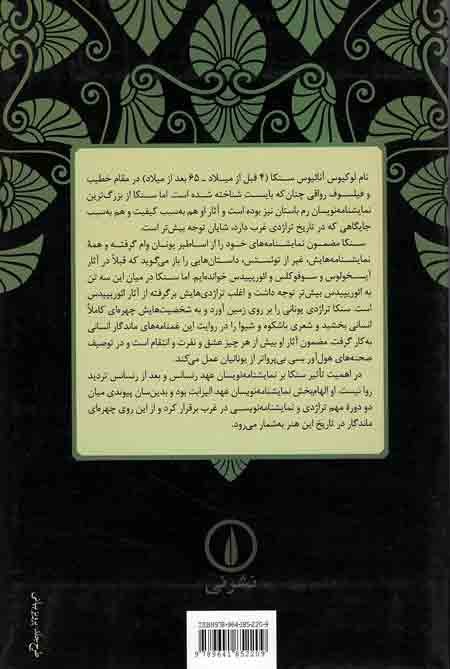 نام لوکیوس آنائیوس سنکا (۴ قبل از میلاد ـ ۶۵ بعد از میلاد) در مقام خطیب
و فیلسوف رواقی چنان که بایست شناخته شده است. اما سنکا از بزرگ‌ترین
نمایشنامه‌نویسان رم باستان نیز بوده است و آثار او هم به‌سبب کیفیت و هم به‌سبب
جایگاهی که در تاریخ تراژدی غرب دارد، شایان توجه بیش‌تر است.
سنکا مضمون نمایشنامه‌های خود را از اساطیر یونان وام گرفته و همهٔ
نمایشنامه‌هایش، غیر از توئستس، داستان‌هایی را باز می‌گوید که قبلاً در آثار
آیسخولوس و سوفوکلس و ائوریپیدس خوانده‌ایم. اما سنکا در میان این سه تن
به ائوریپیدس بیش‌تر توجه داشت و اغلب تراژدی‌هایش برگرفته از آثار ائوریپیدس
است. سنکا تراژدی یونانی را بر روی زمین آورد و به شخصیت‌هایش چهره‌ای کاملاً
انسانی بخشید و شعری باشکوه و شیوا را در روایت این غمنامه‌های ماندگار انسانی
به‌کار گرفت. مضمون آثار او بیش از هر چیز عشق و نفرت و انتقام است و در توصیف
صحنه‌های هول‌آور بسی بی‌پرواتر از یونانیان عمل می‌کند.
در اهمیت تأثیر سنکا بر نمایشنامه‌نویسان عهد رنسانس و بعد از رنسانس تردید
روا نیست. او الهام‌بخش نمایشنامه‌نویسان عهد الیزابت بود و بدین‌سان پیوندی میان
دو دورهٔ مهم تراژدی و نمایشنامه‌نویسی در غرب برقرار کرد و از این روی چهره‌ای
ماندگار در تاریخ این هنر به‌شمار می‌رود.
نشرنی
طرح جلد: پرویز بیانی
ISBN978-964-185-220-9
9 789641 852209